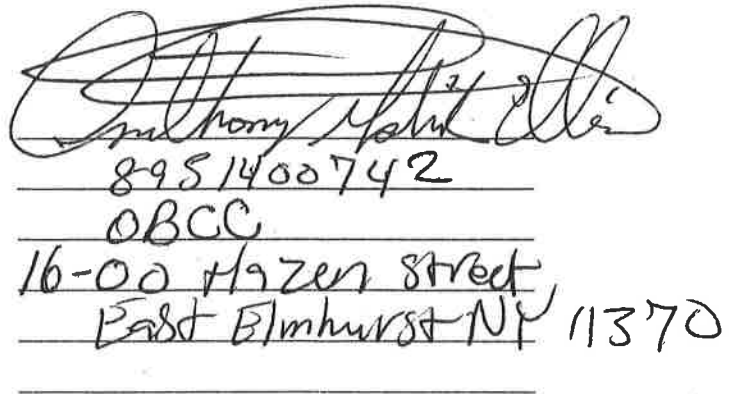 Anthony Malik Ellis
8951400742
OBCC
16-00 Hazen Street
East Elmhurst NY 11370